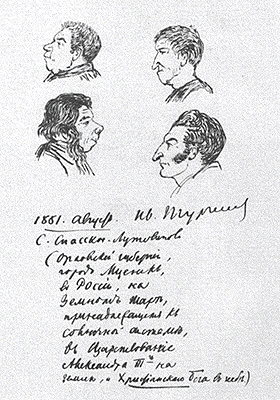 1881. Август. Ив. Тургенев
С. Спасское-Лутовиново
(Орловской губернии,
городъ Мценскъ,
въ Россіи, на
Земномъ шарѣ,
принадлежащемъ къ
солнечной системѣ,
въ Царствованіе
Александра III на
земли, и Христіанскаго бога въ небѣ)